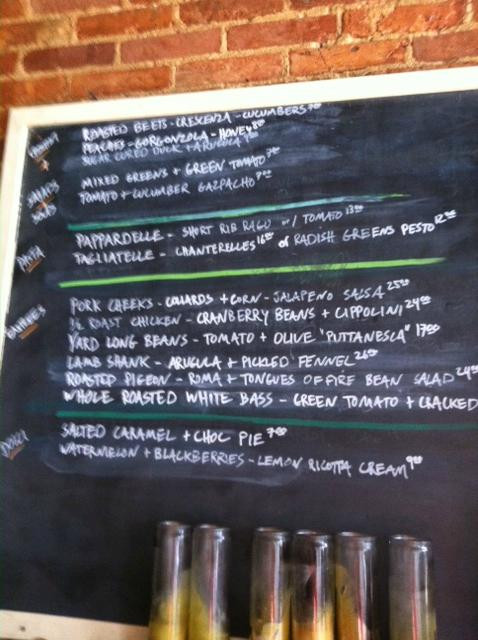 ROASTED BEETS - CRESCENZA - CUCUMBERS 7⁰⁰
PEACHES - GORGONZOLA - HONEY 8⁰⁰
SUGAR CURED DUCK + ARUGULA
SALADS
MIXED GREENS + GREEN TOMATO 7⁰⁰
TOMATO + CUCUMBER GAZPACHO 7⁰⁰
PASTA
PAPPARDELLE - SHORT RIB RAGU or / TOMATO 13⁰⁰
TAGLIATELLE - CHANTERELLES 16⁰⁰ or RADISH GREENS PESTO 12⁰⁰
ENTREES
PORK CHEEKS - COLLARDS + CORN - JALAPENO SALSA 25⁰⁰
½ ROAST CHICKEN - CRANBERRY BEANS + CIPPOLINI 24⁰⁰
YARD LONG BEANS - TOMATO + OLIVE "PUTTANESCA" 17⁰⁰
LAMB SHANK - ARUGULA + PICKLED FENNEL 26⁰⁰
ROASTED PIGEON - ROMA + TONGUES OF FIRE BEAN SALAD 24⁰⁰
WHOLE ROASTED WHITE BASS - GREEN TOMATO + CRACKED
DOLCI
SALTED CARAMEL + CHOC PIE 7⁰⁰
WATERMELON + BLACKBERRIES - LEMON RICOTTA CREAM 9⁰⁰